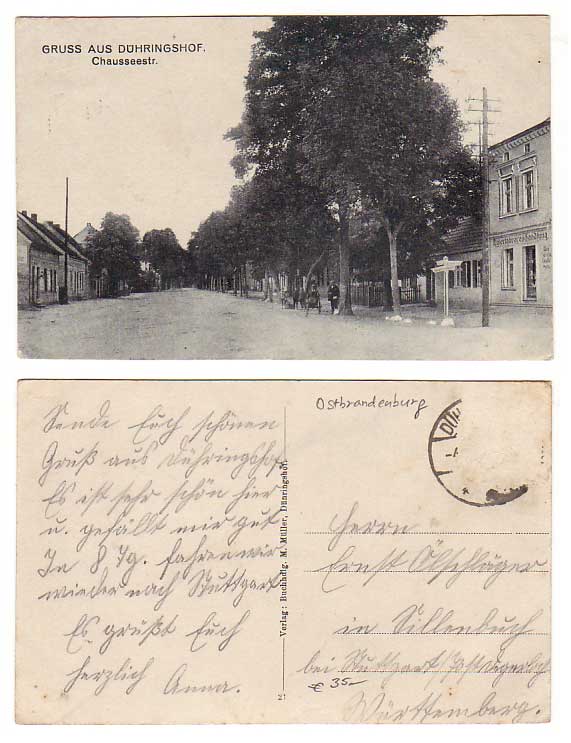 GRUSS AUS DÜHRINGSHOF.
Chausseestr.
Sende Euch schönen
Gruß aus Dühringshof
Es ist sehr schön hier
u. gefällt mir gut
In 8 Tg. fahren wir
wieder nach Stuttgart
Es grüßt Euch
herzlich Anna.
Verlag: Buchhdlg. M. Müller, Dühringshof.
21
Ostbrandenburg
Herrn
Ernst Ölschläger
in Sillenbuch
bei Stuttgart Post Degerloch
Württemberg.
€ 35.-